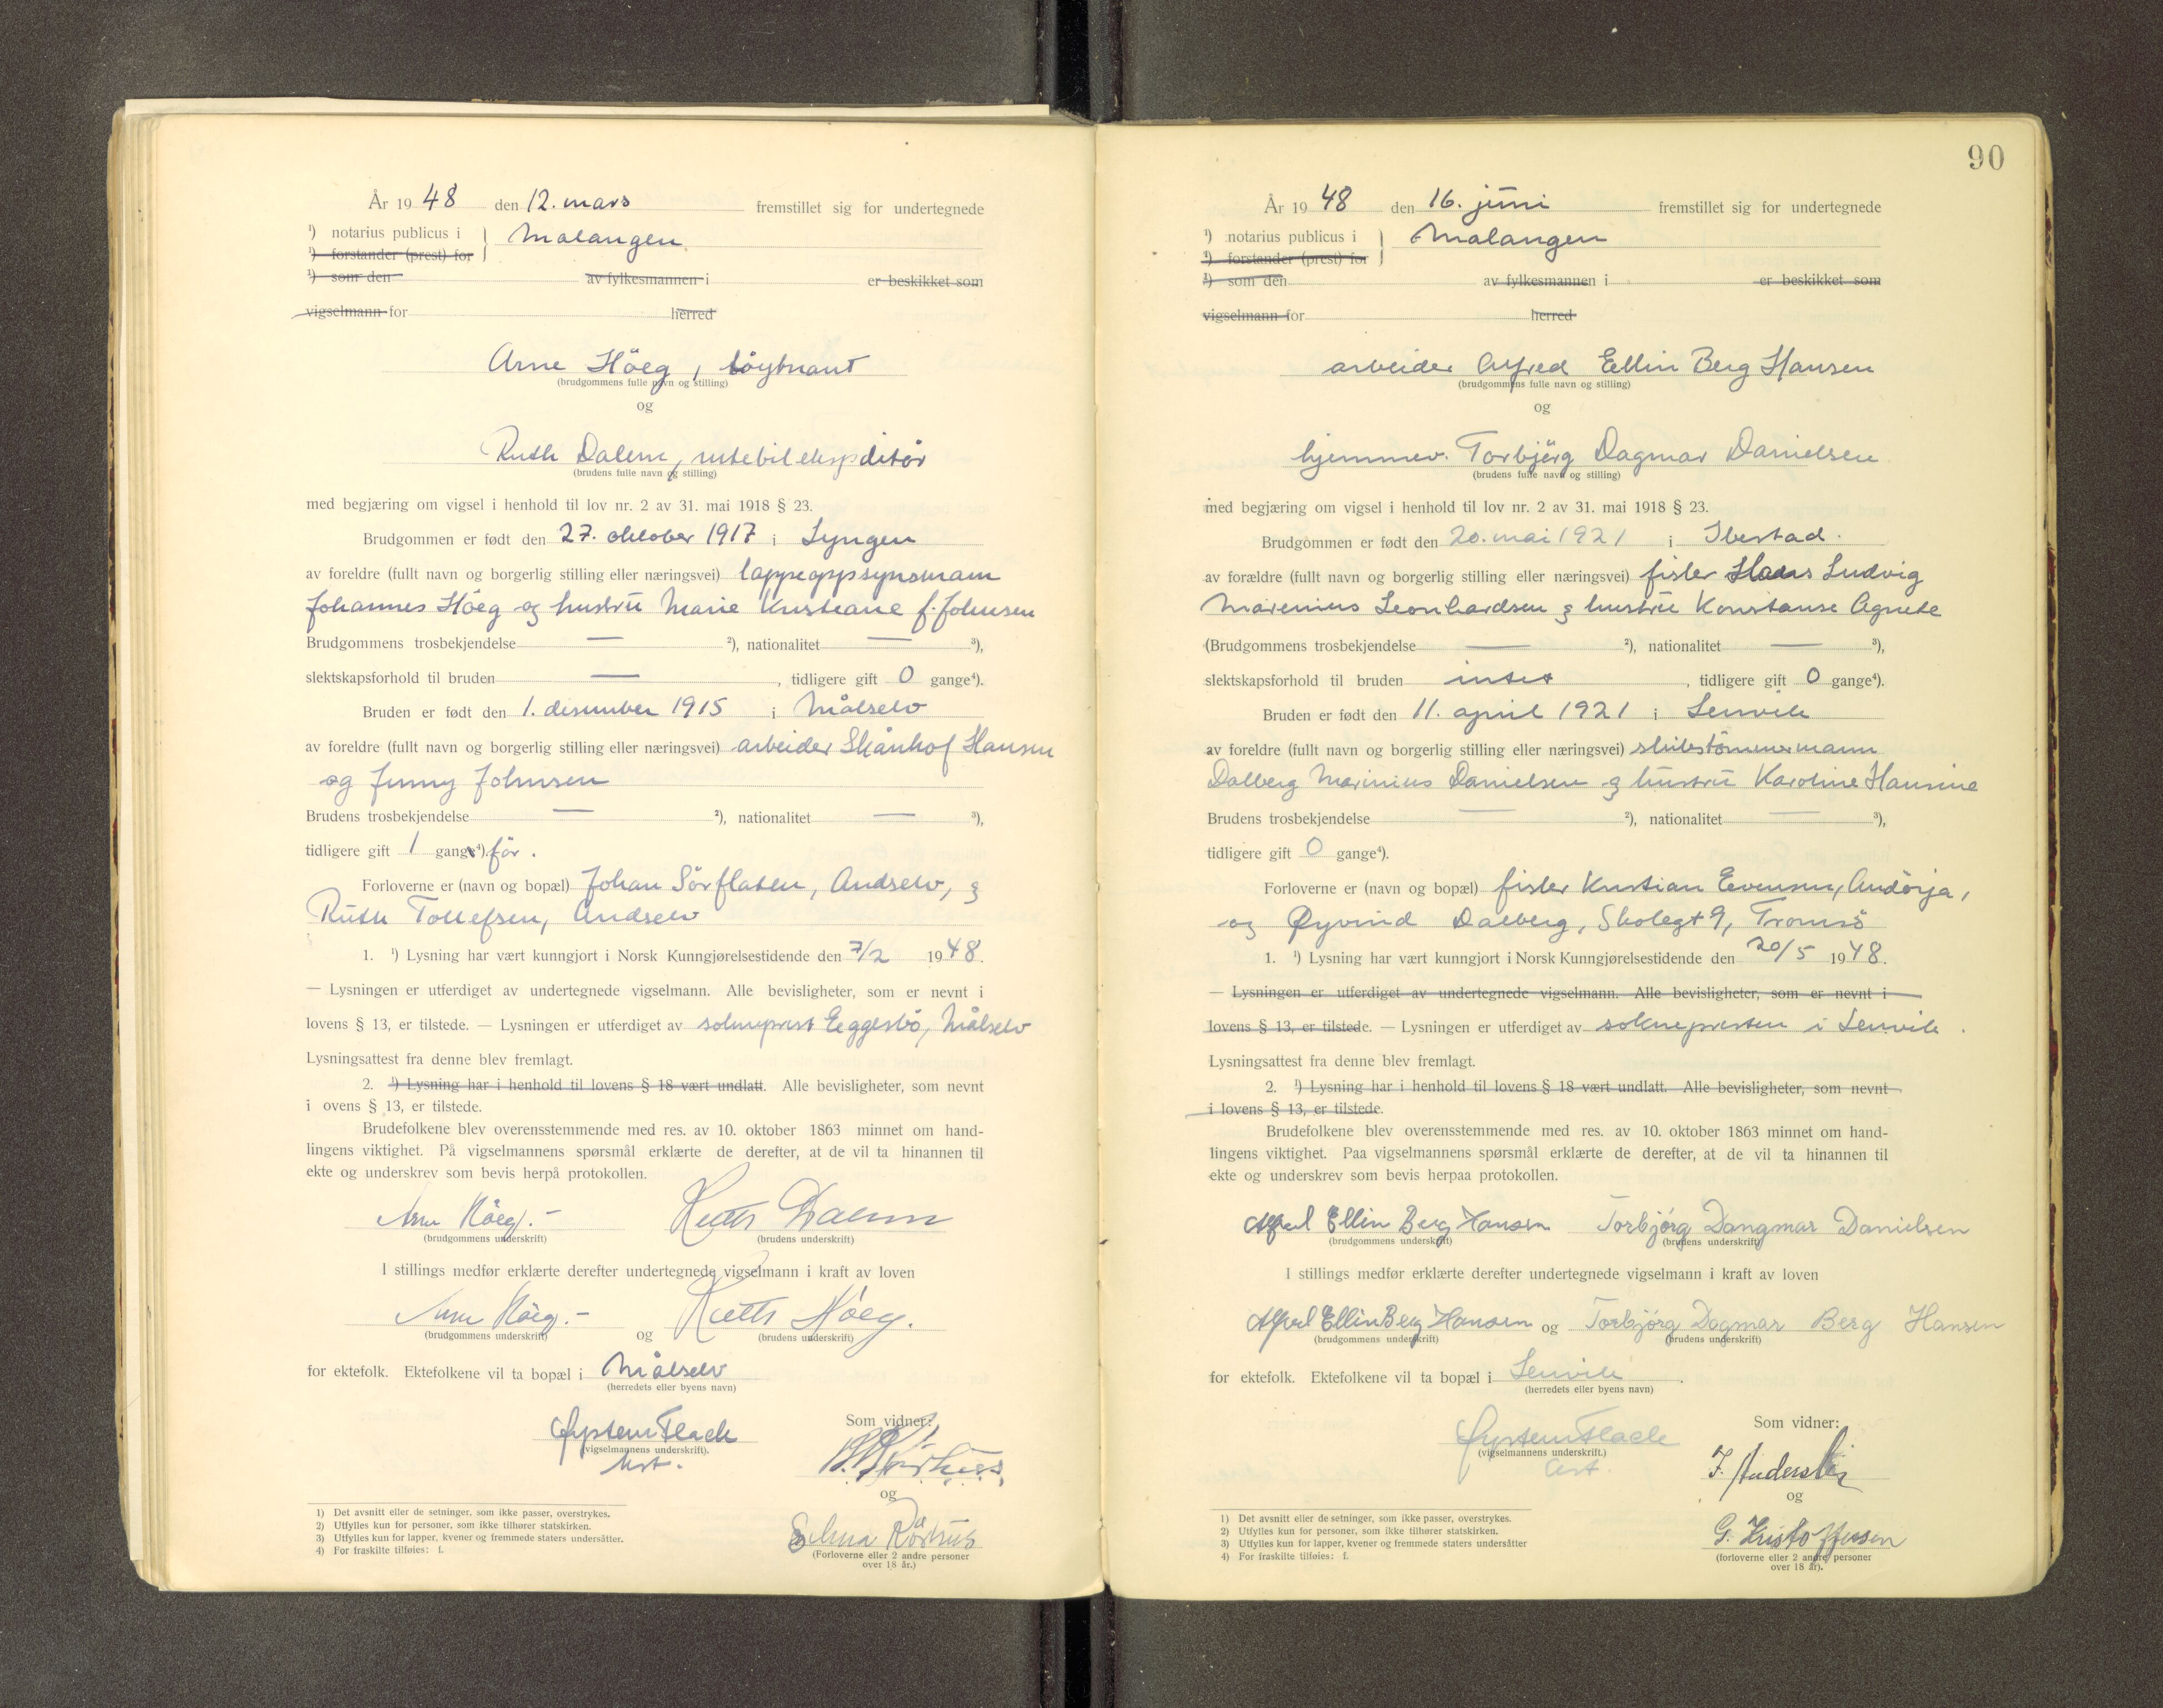 År 19 48 den 12. mars fremstillet sig for undertegnede
¹) notarius publicus i } Malangen
¹) forstander (prest) for
¹) som den av fylkesmannen i er beskikket som
vigselmann for herred
Arne Höeg, löytnant
(brudgommens fulle navn og stilling)
og
Ruth Dalem, rutebilekspeditör
(brudens fulle navn og stilling)
med begjæring om vigsel i henhold til lov nr. 2 av 31. mai 1918 § 23.
Brudgommen er født den 27. oktober 1917 i Lyngen
av foreldre (fullt navn og borgerlig stilling eller næringsvei) lappeoppsynsmann
Johannes Höeg og hustru Marie Kristiane f. Johnsen
Brudgommens trosbekjendelse — ²), nationalitet — ³),
slektskapsforhold til bruden — , tidligere gift 0 gange⁴).
Bruden er født den 1. desember 1915 i Målselv
av foreldre (fullt navn og borgerlig stilling eller næringsvei) arbeider Skånhof Hansen
og Jenny Johnsen
Brudens trosbekjendelse — ²), nationalitet — ³),
tidligere gift 1 gang⁴). för.
Forloverne er (navn og bopæl) Johan Sörflaten, Andselv, &
Ruth Tollefsen, Andselv
1. ¹) Lysning har vært kunngjort i Norsk Kunngjørelsestidende den 7/2 1948.
— Lysningen er utferdiget av undertegnede vigselmann. Alle bevisligheter, som er nevnt i
lovens § 13, er tilstede. — Lysningen er utferdiget av sokneprest Eggesbö, Målselv
Lysningsattest fra denne blev fremlagt.
2. ¹) Lysning har i henhold til lovens § 18 vært undlatt. Alle bevisligheter, som nevnt
i ovens § 13, er tilstede.
Brudefolkene blev overensstemmende med res. av 10. oktober 1863 minnet om hand-
lingens viktighet. På vigselmannens spørsmål erklærte de derefter, at de vil ta hinannen til
ekte og underskrev som bevis herpå protokollen.
Arne Höeg.- Ruth Dalem
(brudgommens underskrift) (brudens underskrift)
I stillings medfør erklærte derefter undertegnede vigselmann i kraft av loven
Arne Höeg.- og Ruth Höeg.
(brudgommens underskrift) (brudens underskrift)
for ektefolk. Ektefolkene vil ta bopæl i Målselv
(herredets eller byens navn)
Som vidner:
Øystein Flack
(vigselmannens underskrift).
og
Selma
(Forloverne eller 2 andre personer
over 18 år.)
1) Det avsnitt eller de setninger, som ikke passer, overstrykes.
2) Utfylles kun for personer, som ikke tilhører statskirken.
3) Utfylles kun for lapper, kvener og fremmede staters undersåtter.
4) For fraskilte tilføies: f.
90
År 19 48 den 16. juni fremstillet sig for undertegnede
¹) notarius publicus i } Malangen
¹) forstander (prest) for
¹) som den av fylkesmannen i er beskikket som
vigselmann for herred
arbeider Alfred Ellin Berg Hansen
(brudgommens fulle navn og stilling)
og
hjemmev. Torbjörg Dagmar Danielsen
(brudens fulle navn og stilling)
med begjæring om vigsel i henhold til lov nr. 2 av 31. mai 1918 § 23.
Brudgommen er født den 20. mai 1921 i Ibestad.
av forældre (fullt navn og borgerlig stilling eller næringsvei) fisker Hans Ludvig
Marenius Leonhardsen & hustru Konstanse Agnete
(Brudgommens trosbekjendelse — ²), nationalitet — ³),
slektskapsforhold til bruden intet , tidligere gift 0 gange⁴).
Bruden er født den 11. april 1921 i Lenvik
av foreldre (fullt navn og borgerlig stilling eller næringsvei) skibstömmermann
Dalberg Marinius Danielsen & hustru Karoline Hansine
Brudens trosbekjendelse — ²), nationalitet — ³),
tidligere gift 0 gange⁴).
Forloverne er (navn og bopæl) fisker Kristian Evensen, Andörja,
og Øyvind Dalberg, Skolegt 9, Tromsö
1. ¹) Lysning har vært kunngjort i Norsk Kunngjørelsestidende den 20/5 1948.
— Lysningen er utferdiget av undertegnede vigselmann. Alle bevisligheter, som er nevnt i
lovens § 13, er tilstede. — Lysningen er utferdiget av sokneprest­en i Lenvik.
Lysningsattest fra denne blev fremlagt.
2. ¹) Lysning har i henhold til lovens § 18 vært undlatt. Alle bevisligheter, som nevnt
i lovens § 13, er tilstede.
Brudefolkene blev overensstemmende med res. av 10. oktober 1863 minnet om hand-
lingens viktighet. Paa vigselmannens spørsmål erklærte de derefter, at de vil ta hinannen til
ekte og underskrev som bevis herpaa protokollen.
Alfred Ellin Berg Hansen Torbjørg Dangmar Danielsen
(brudgommens underskrift) (brudens underskrift)
I stillings medfør erklærte derefter undertegnede vigselmann i kraft av loven
Alfred Ellin Berg Hansen og Torbjørg Dagmar Berg Hansen
(brudgommens underskrift) (brudens underskrift)
for ektefolk. Ektefolkene vil ta bopæl i Lenvik.
(herredets eller byens navn)
Som vidner:
Øystein Flack
(vigselmannens underskrift.)
og
G. Kristoffersen
(forloverne eller 2 andre personer
over 18 år).
1) Det avsnitt eller de setninger, som ikke passer, overstrykes.
2) Utfylles kun for personer, som ikke tilhører statskirken.
3) Utfylles kun for lapper, kvener og fremmede staters undersåtter
4) For fraskilte tilføies: f.